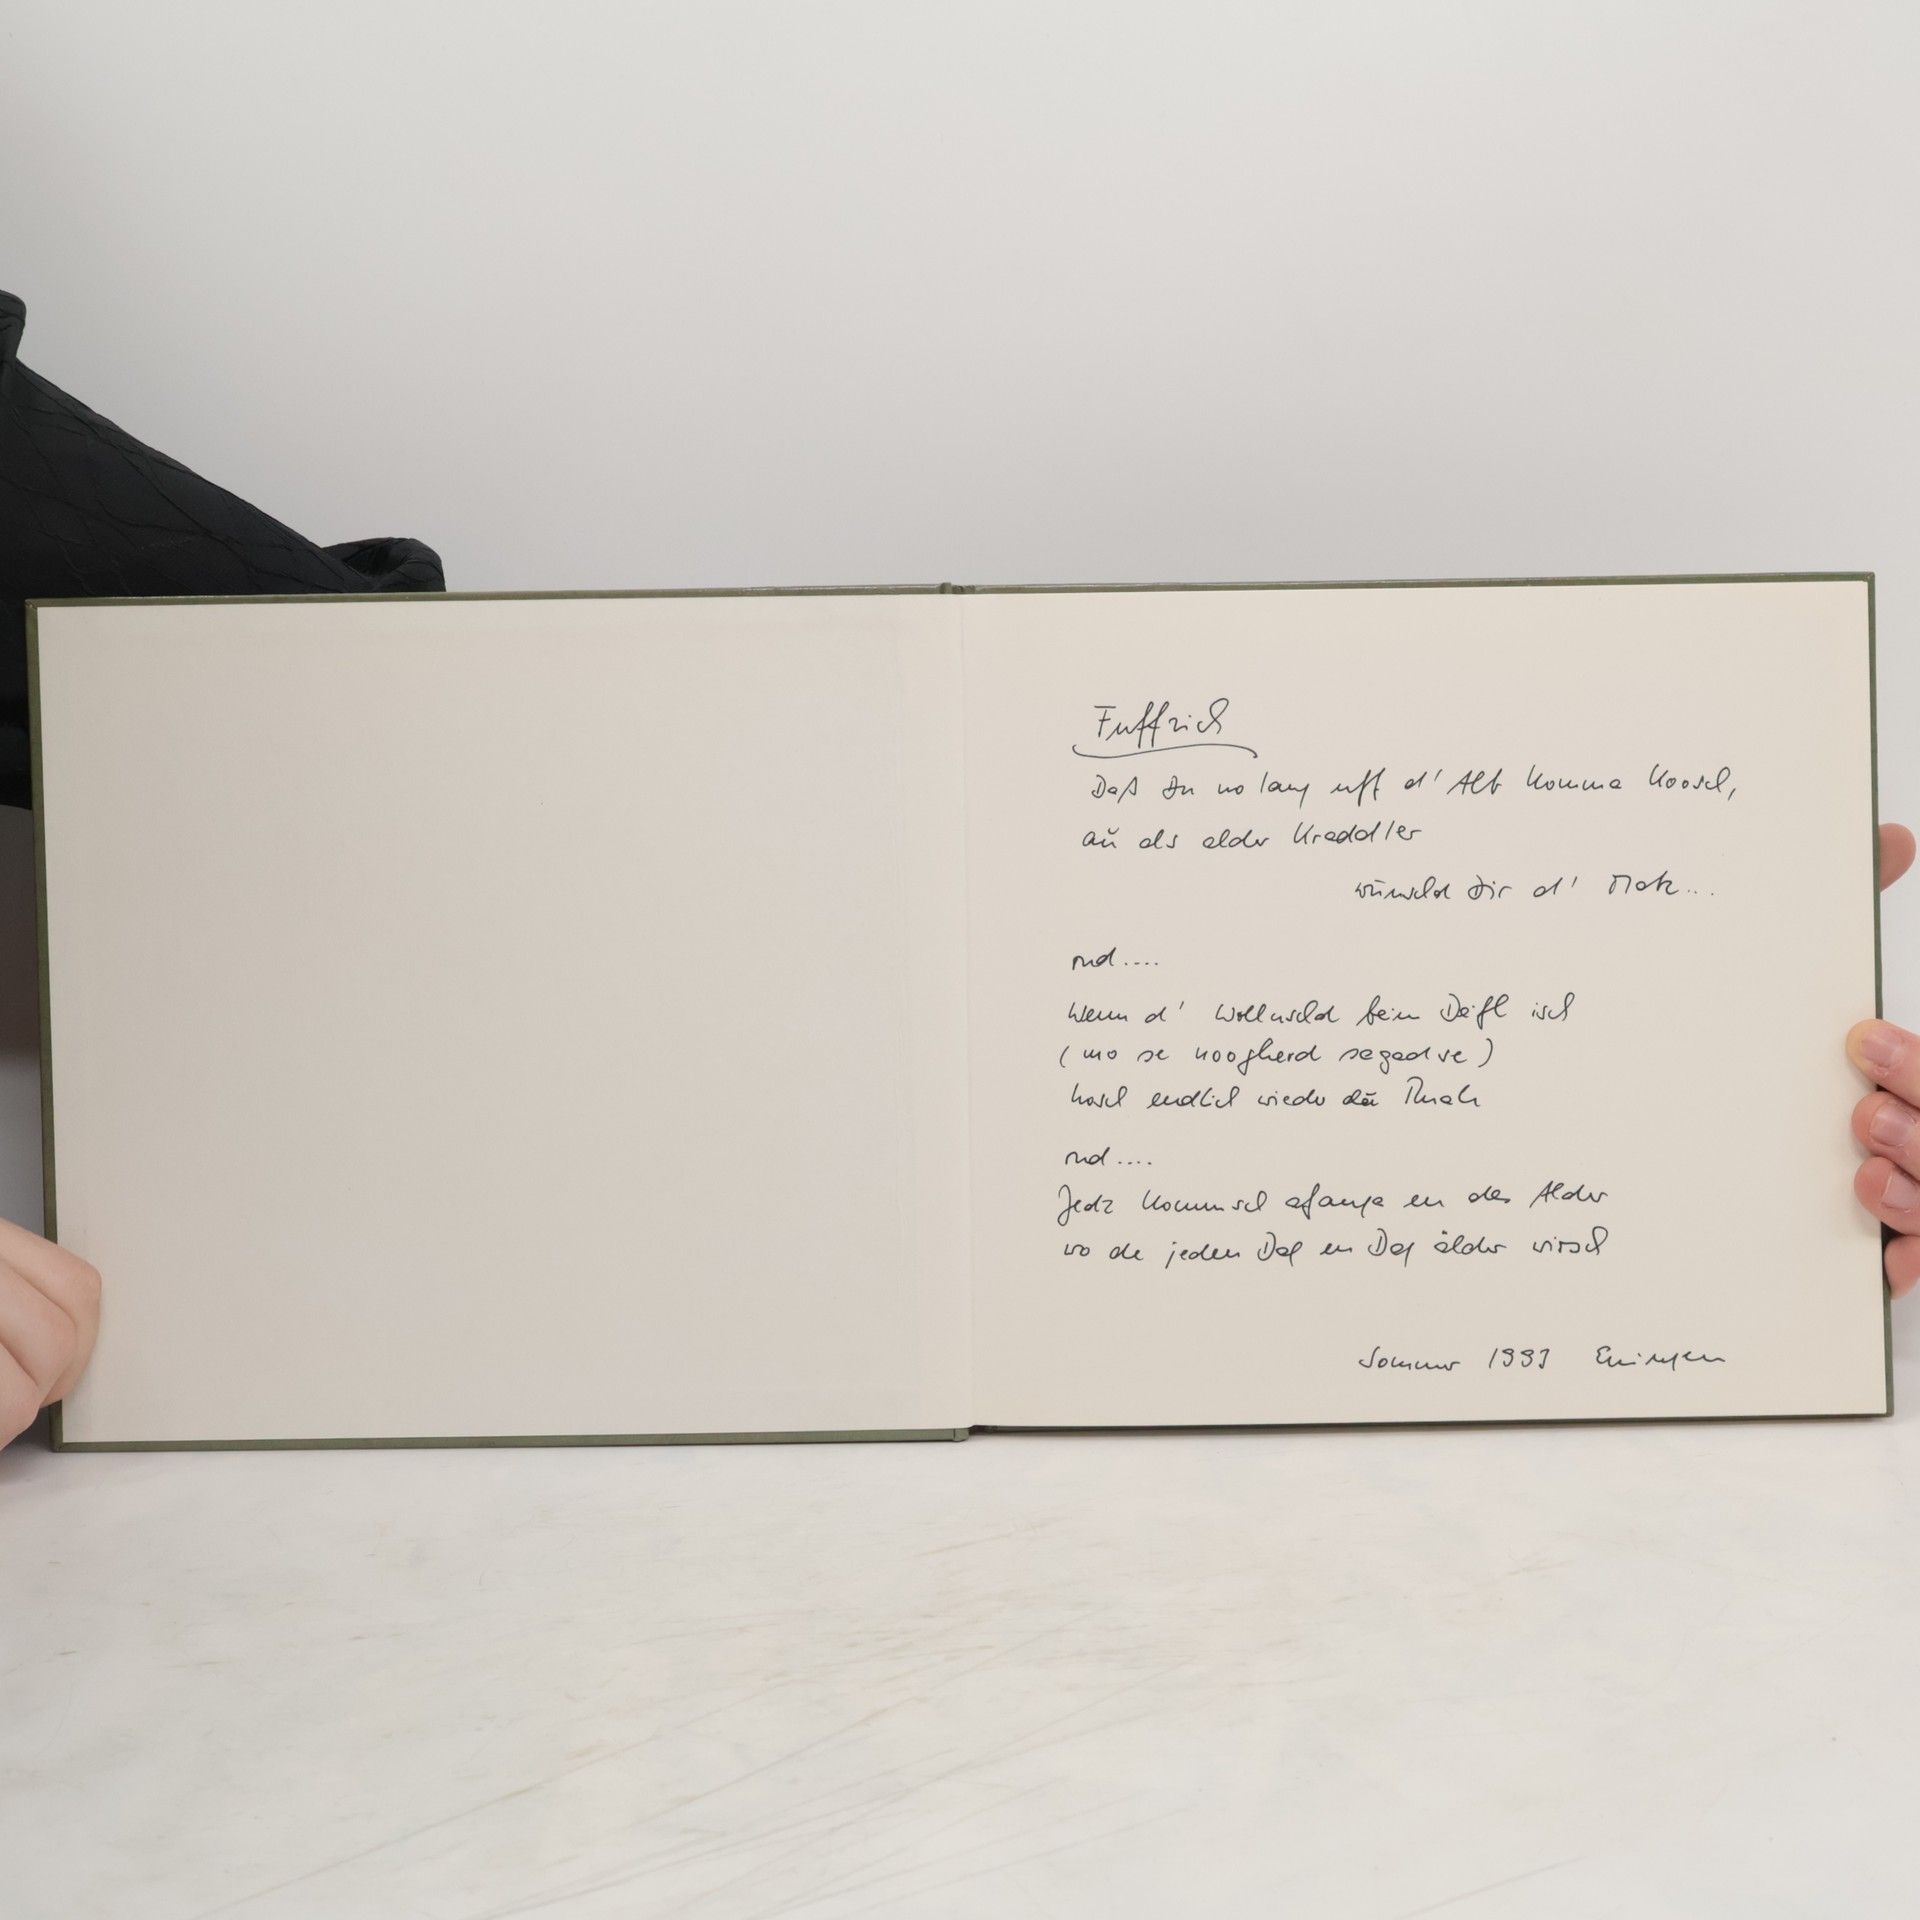 Fuffzich
Daß Du no lang uff d' Alb komma koosch,
aŭ als alder Kraddler
wünschd Dir d' Mak...
ond....
Wenn d' Wollnschd beim Deifl isch
(mo se noogherd segad se)
hosch endlich wieder dei Ruah
ond....
Jedz kommsch afanga en des Alder
wo de jeden Dag en Dag älder wirsch
Sommer 1993 Eningen